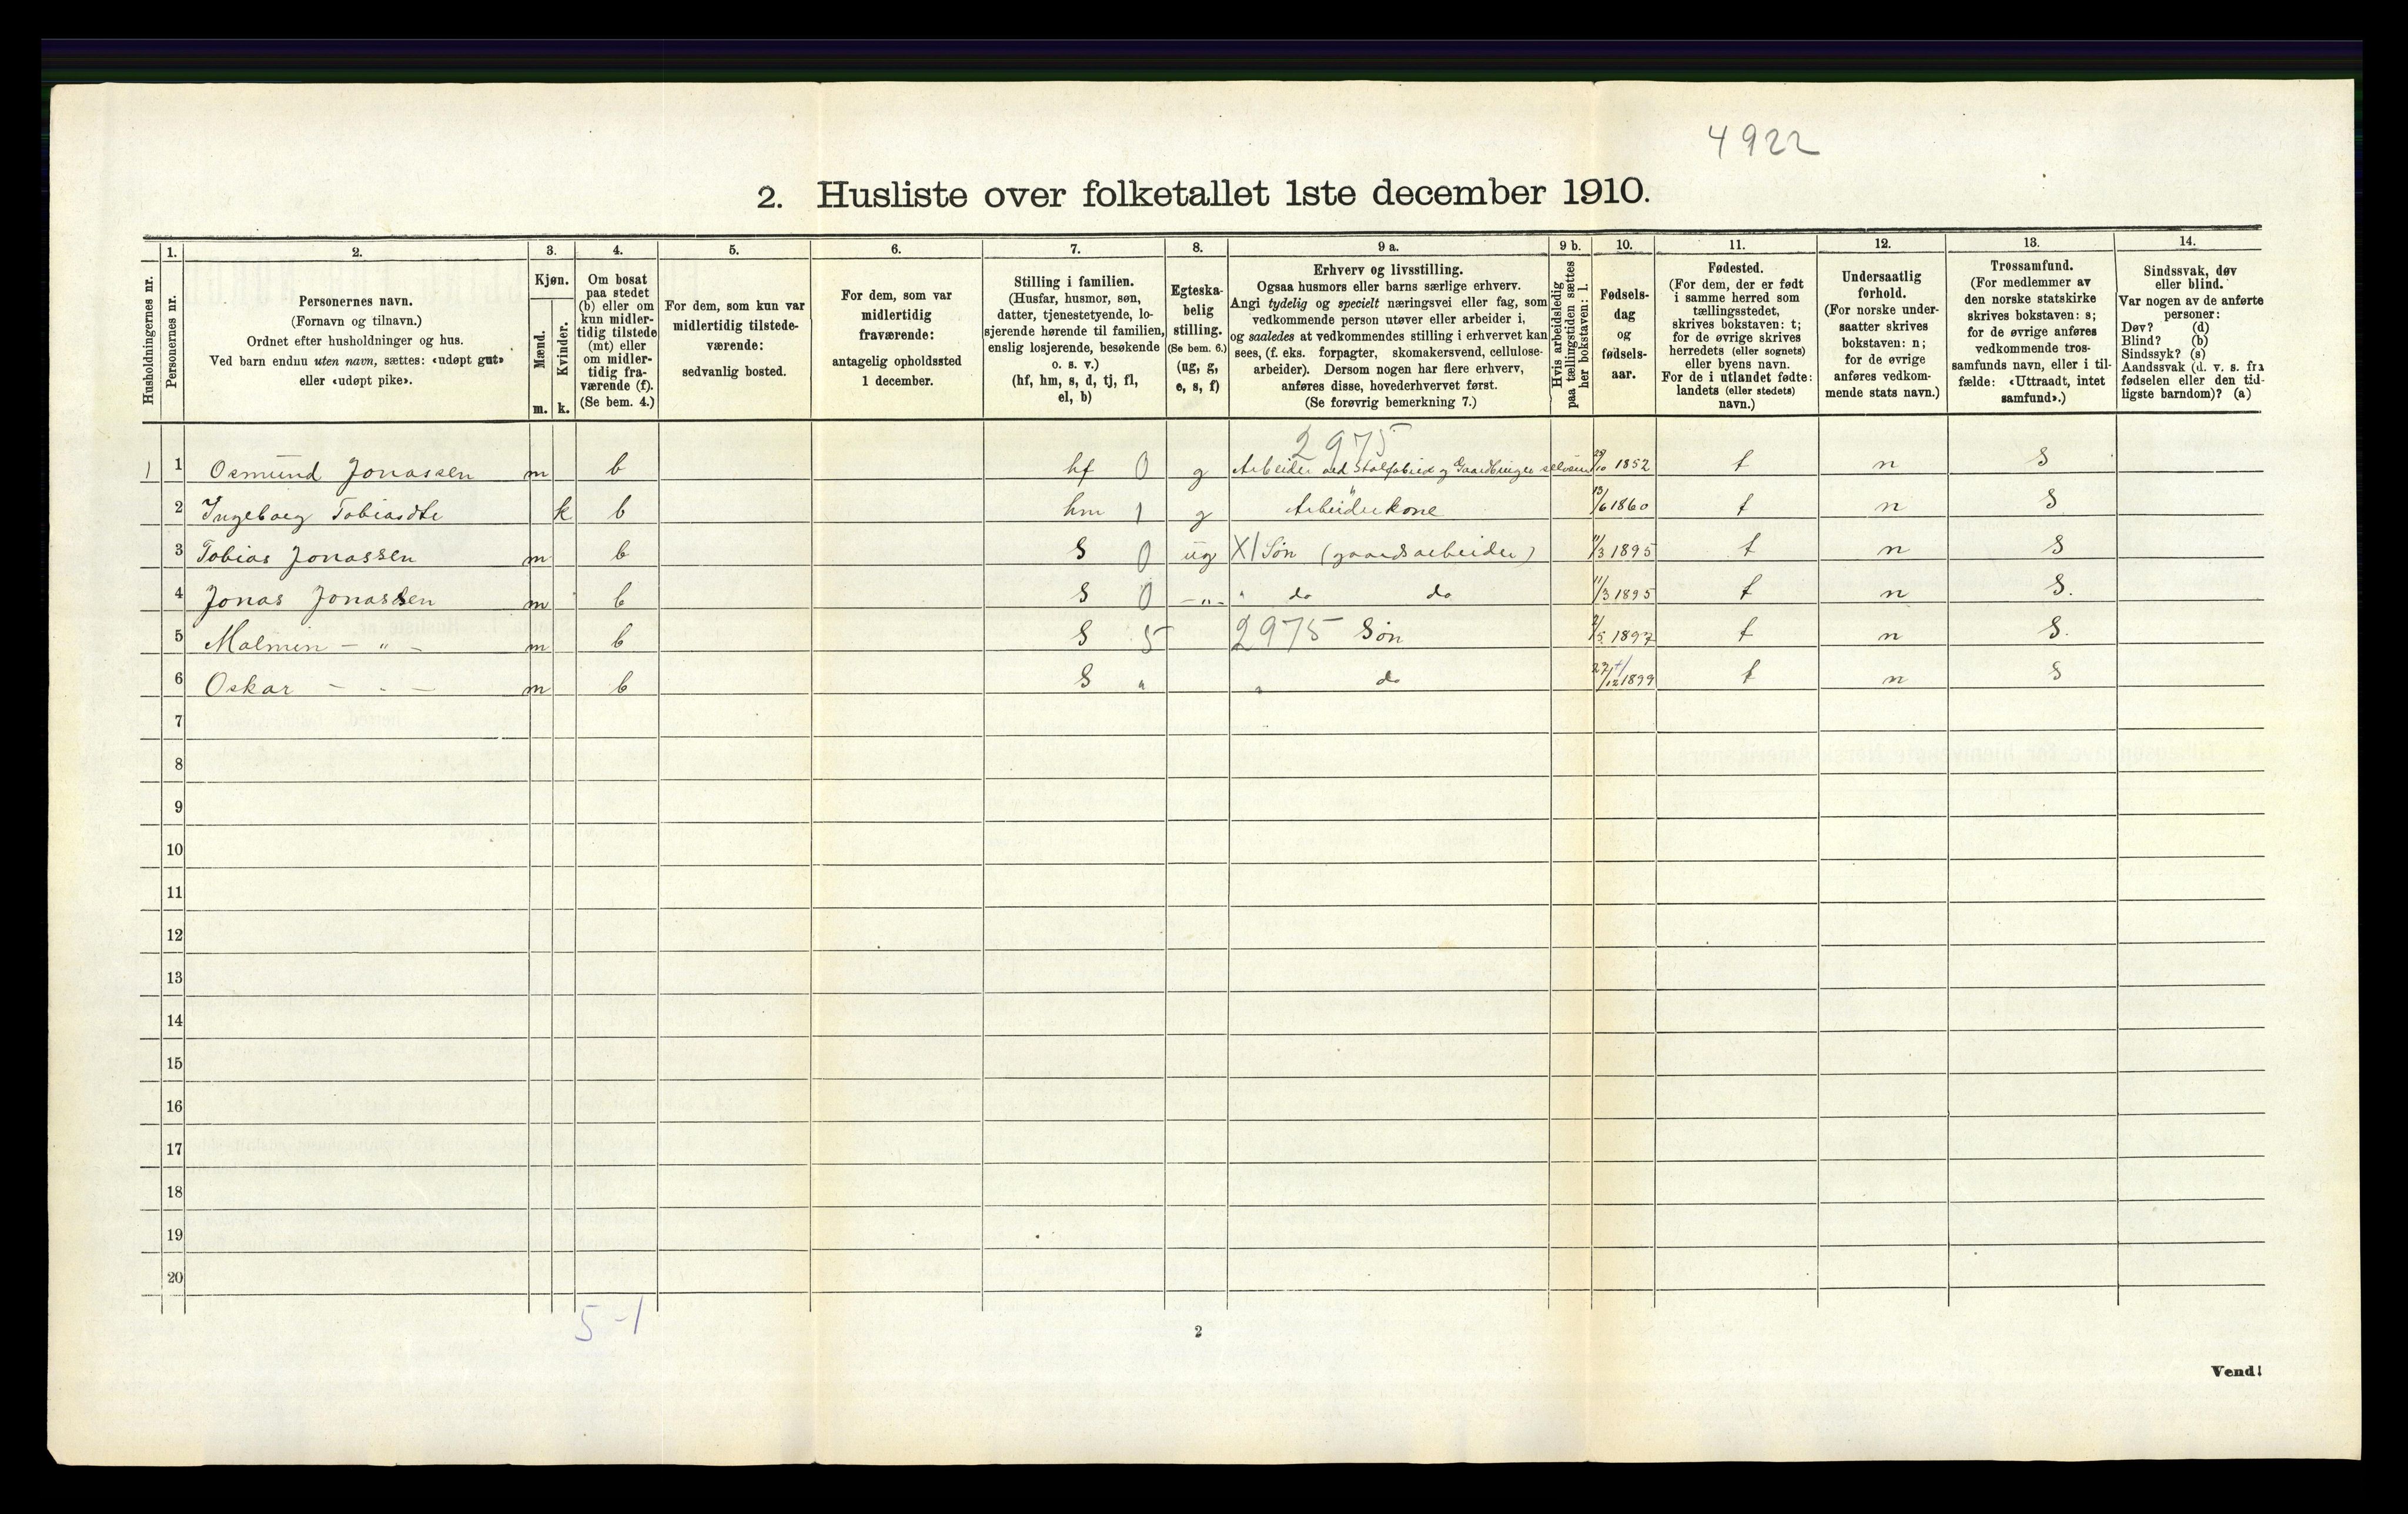 4922
2. Husliste over folketallet 1ste december 1910.
Husholdningernes nr.
1.
Personernes nr.
2.
Personernes navn.
(Fornavn og tilnavn.)
Ordnet efter husholdninger og hus.
Ved barn endnu uten navn, sættes: «udøpt gut»
eller «udøpt pike».
3.
Kjøn.
Mænd.
Kvinder.
m. k.
4.
Om bosat
paa stedet
(b) eller om
kun midler-
tidig tilstede
(mt) eller
om midler-
tidig fra-
værende (f).
(Se bem. 4.)
5.
For dem, som kun var
midlertidig tilstede-
værende:
sedvanlig bosted.
6.
For dem, som var
midlertidig
fraværende:
antagelig opholdssted
1 december.
7.
Stilling i familien.
(Husfar, husmor, søn,
datter, tjenestetyende, lo-
sjerende hørende til familien,
enslig losjerende, besøkende
o. s. v.)
(hf, hm, s, d, tj, fl,
el, b)
8.
Egteska-
belig
stilling.
(Se bem. 6.)
(ug, g,
e, s, f)
9 a.
Erhverv og livsstilling.
Ogsaa husmors eller barns særlige erhverv.
Angi tydelig og specielt næringsvei eller fag, som
vedkommende person utøver eller arbeider i,
og saaledes at vedkommendes stilling i erhvervet kan
sees, (f. eks. forpagter, skomakersvend, cellulose-
arbeider). Dersom nogen har flere erhverv,
anføres disse, hovederhvervet først.
(Se forøvrig bemerkning 7.)
9 b.
Hvis arbeidsledig
paa tællingstiden sættes
her bokstaven: l.
10.
Fødsels-
dag
og
fødsels-
aar.
11.
Fødested.
(For dem, der er født
i samme herred som
tællingsstedet,
skrives bokstaven: t;
for de øvrige skrives
herredets (eller sognets)
eller byens navn.
For de i utlandet fødte:
landets (eller stedets)
navn.)
12.
Undersaatlig
forhold.
(For norske under-
saatter skrives
bokstaven: n;
for de øvrige
anføres vedkom-
mende stats navn.)
13.
Trossamfund.
(For medlemmer av
den norske statskirke
skrives bokstaven: s;
for de øvrige anføres
vedkommende tros-
samfunds navn, eller i til-
fælde: «Uttraadt, intet
samfund».)
14.
Sindssvak, døv
eller blind.
Var nogen av de anførte
personer:
Døv? (d)
Blind? (b)
Sindssyk? (s)
Aandssvak (d. v. s. fra
fødselen eller den tid-
ligste barndom)? (a)
2975
1 1 Osmund Jonassen m b hf 0 g Arbeider ved Stolfabrik og Gaardbruger selveier 10 1852 t n S
2 Ingeborg Tobiasdtr k b hm 1 g Arbeiderkone 13/6 1860 t n S
3 Tobias Jonassen m b S 0 ug X1 Søn (gaardsarbeider) 11/3 1895 t n S
4 Jonas Jonassen m b S 0 -"- " do do 11/3 1895 t n S.
5 Malmin - " - m b S 5 2975 Søn 2/5 1897 t n S.
6 Oskar - " - m b S " " do 27/12 1899 t n S
7
8
9
10
11
12
13
14
15
16
17
18
19
20
5-1
2
Vend!